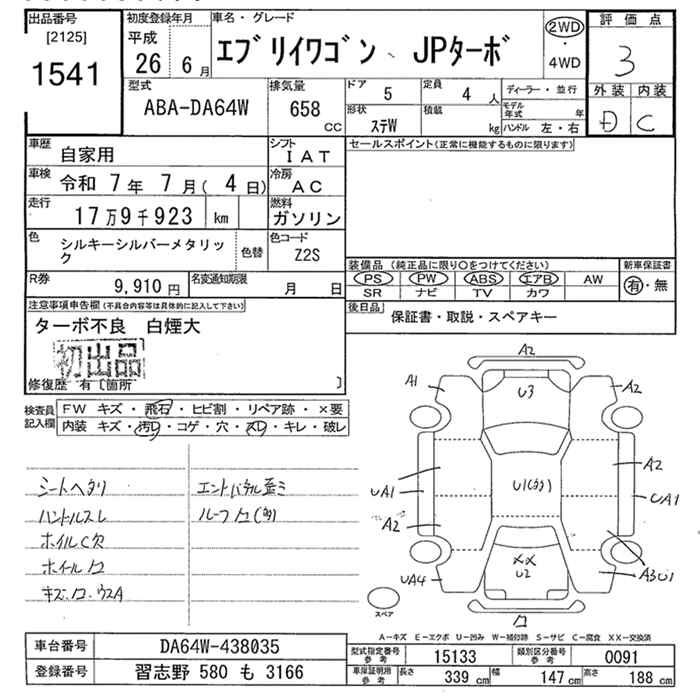 出品番号
[2125]
1541
初度登録年月
平成
26 6月
車名・グレード
エブリイワゴン JPターボ
2WD
・
4WD
評価点
3
外装 内装
D C
型式
ABA-DA64W
排気量
658
CC
ドア
5
定員
4人
形状
ステW
積載
kg
ディーラー・並行
モデル年式 年
ハンドル 左・右
車歴
自家用
シフト
IAT
車検
令和 7年 7月(4日)
冷房
AC
走行
17万9千923 km
燃料
ガソリン
色
シルキーシルバーメタリック
色替
色コード
Z2S
R券
9,910円
名変通知期限
月 日
セールスポイント(正常に機能するものに限ります)
装備品 (純正品に限り○をつけてください)
PS PW ABS エアB AW
SR ナビ TV カワ
新車保証書
有・無
後日品
保証書・取説・スペアキー
注意事項申告欄(不具合内容等は具体的に記入して下さい)
ターボ不良 白煙大
初出品
修復歴 有〔箇所 〕
検査員記入欄
FW キズ・飛石・ヒビ割・リペア跡・×要
内装 キズ・汚レ・コゲ・穴・スレ・キレ・破レ
シートヘタリ
ハンドルスレ
ホイルC欠
ホイール凹
キズ・凹・ウスA
エンドパネル歪ミ
ルーフ凹(多)
A2
A1
U3
A2
A2
UA1
U1(多)
UA1
A2
XX
U2
UA4
A3U1
凹
スペア
A-キズ E-エクボ U-凹み W-補修跡 S-サビ C-腐食 XX-交換済
車台番号
DA64W-438035
登録番号
習志野 580 も 3166
型式指定番号 参考
15133
類別区分番号 参考
0091
車庫証明用 参考
長さ 339cm
幅 147cm
高さ 188cm